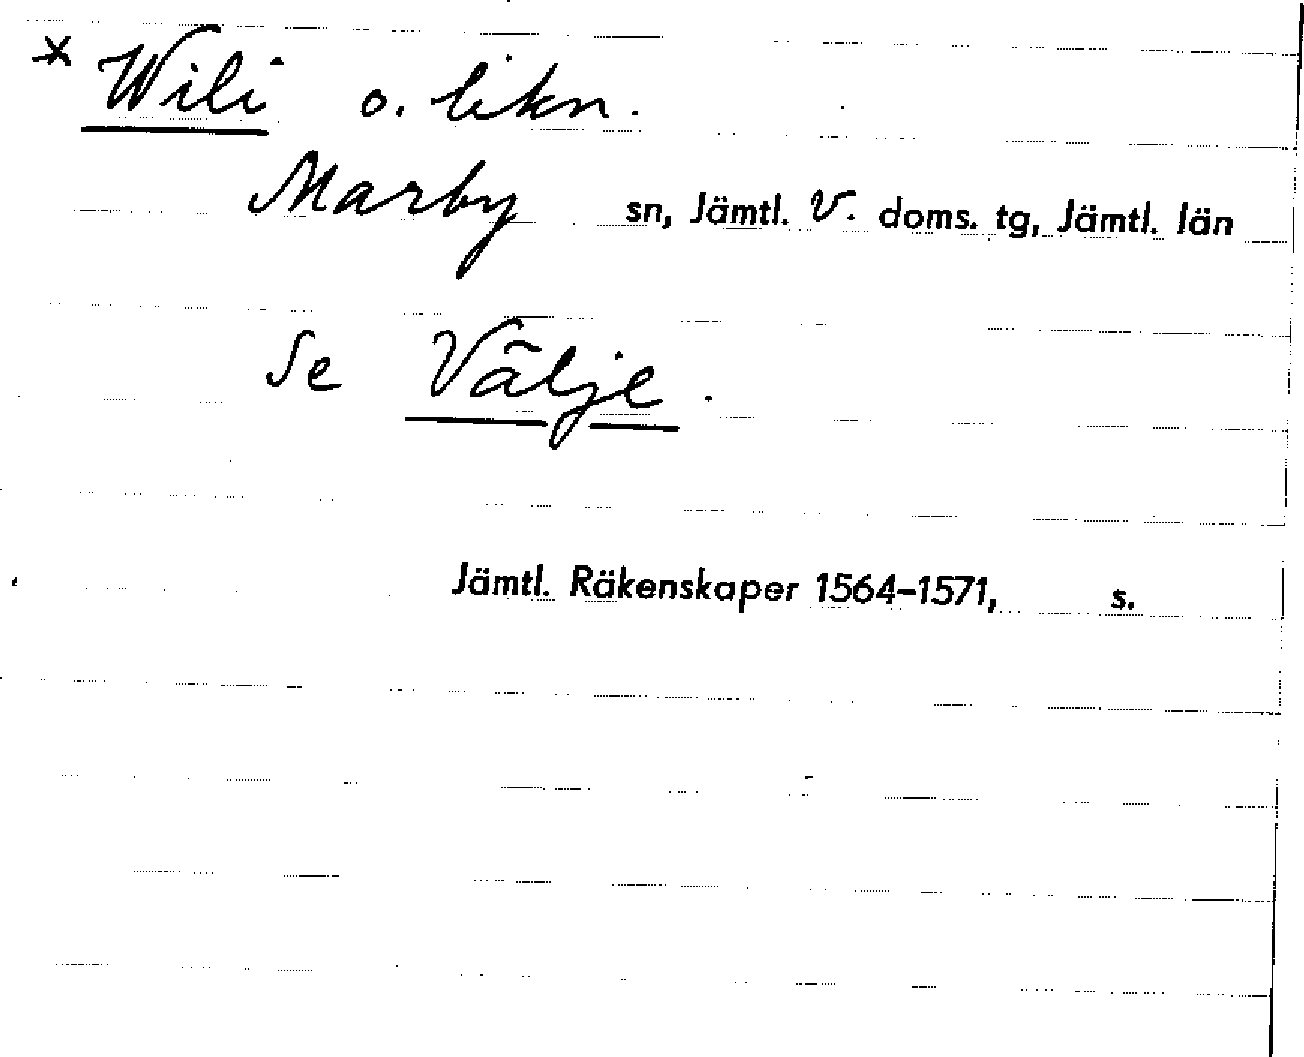 × Wili o. likn.
Marby sn, Jämtl. V. doms. tg, Jämtl. län
Se Välje.
Jämtl. Räkenskaper 1564–1571, s.